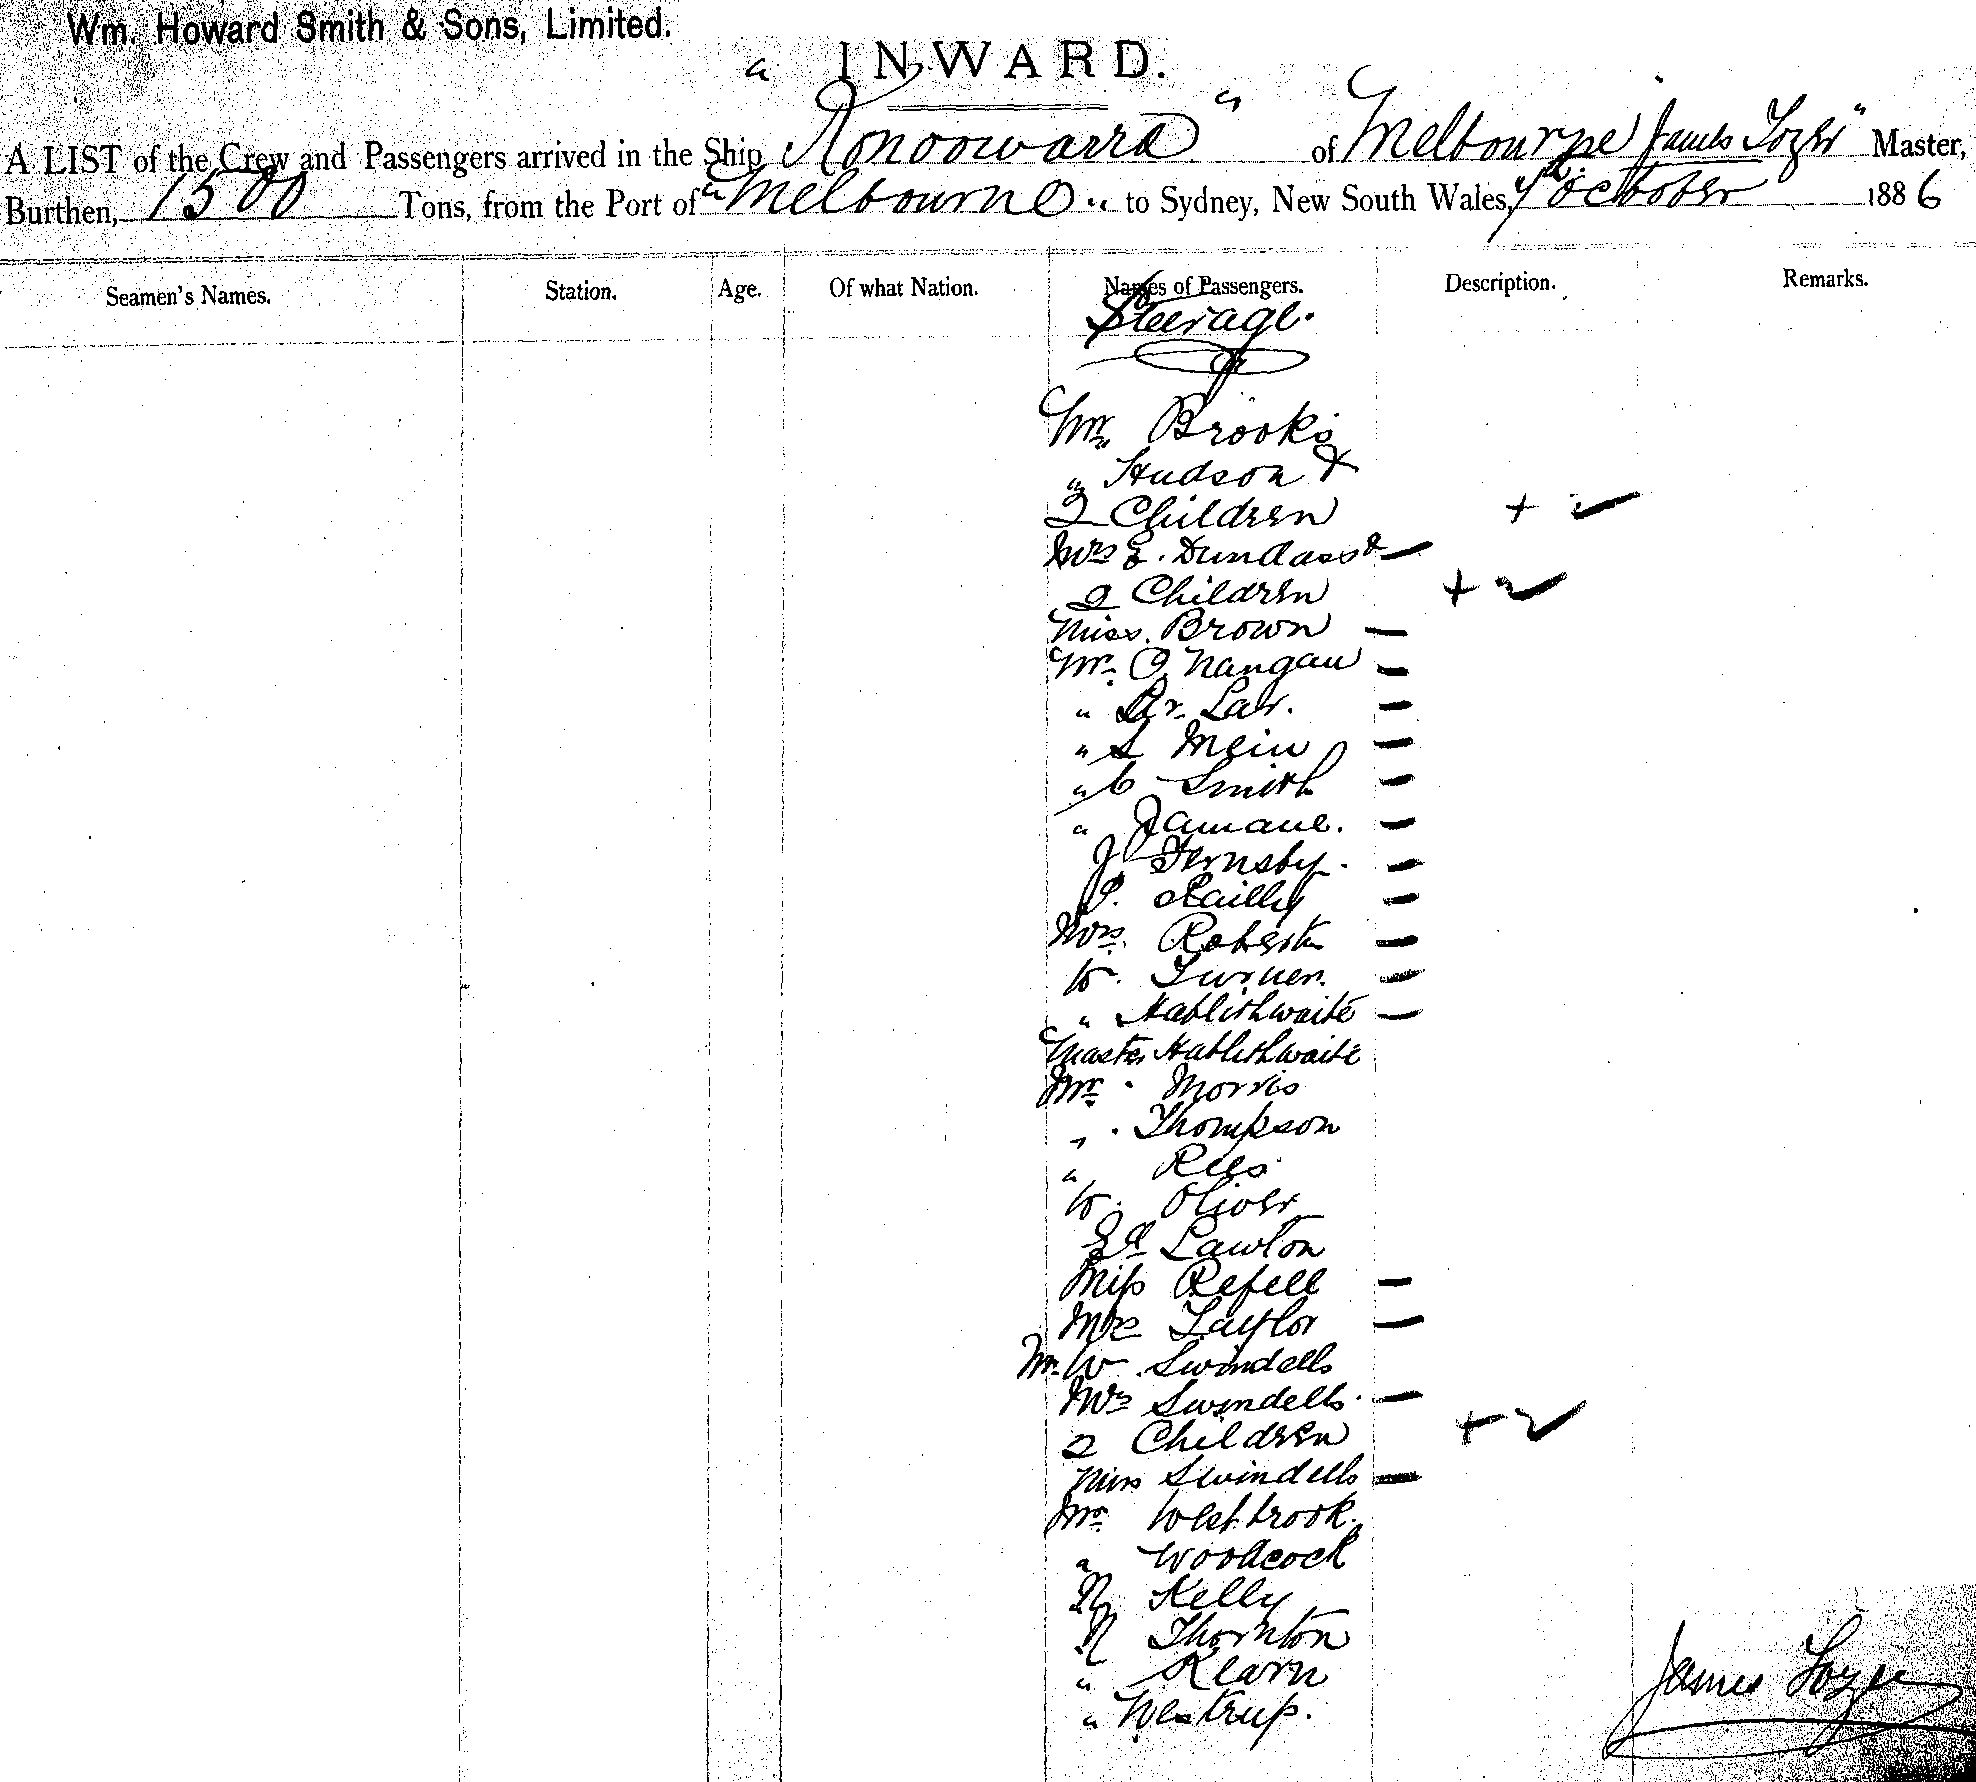 Wm. Howard Smith & Sons, Limited.
INWARD.
A LIST of the Crew and Passengers arrived in the Ship "Konoowarra" of Melbourne James Tozer Master,
Burthen, 1500 Tons, from the Port of "Melbourne" to Sydney, New South Wales, October 1886
Seamen's Names. Station. Age. Of what Nation. Names of Passengers. Description. Remarks.
Steerage.
Mr Brooks
" Hudson &
2 Children + 2
Mrs E. Dundass &
2 Children + 2
Miss Brown
Mr O Nangan
" Law.
" S Mein
" C Smith
"
J Fernsby.
P. Railly
Mrs. Roberts
Turner.
" Hablithwaite
Master Hablithwaite
Mr Morris
" Thompson
" Rees
Oliver
Ed Lawton
Miss Refell
Mrs Taylor
Mr. W. Swindells
Mrs Swindells
2 Children + 2
Miss Swindells
Mr Westbrook.
" Woodcock
Kelly
Thornton
" Kearn
" Westrup.
James Tozer